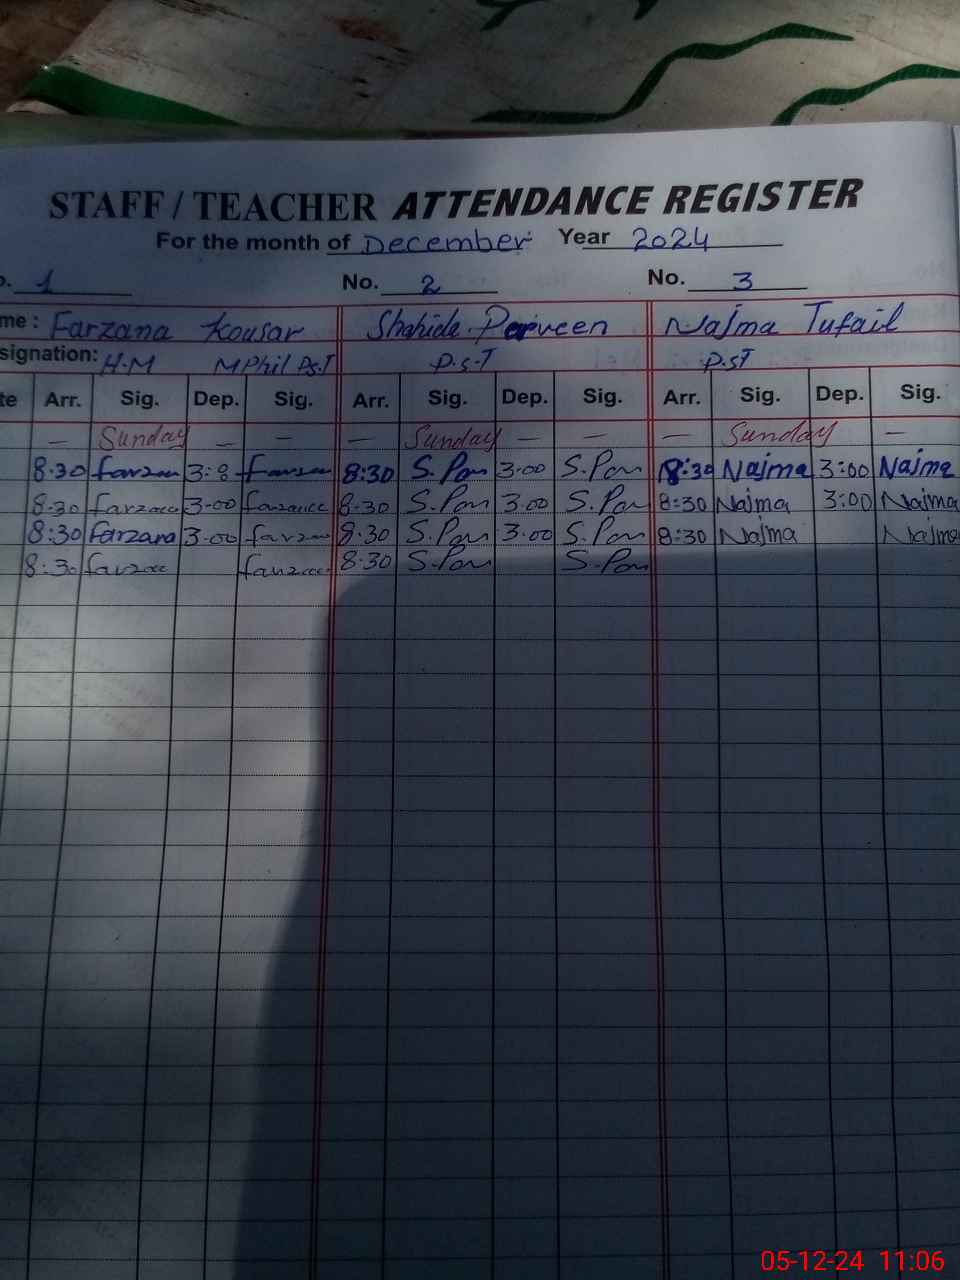 STAFF / TEACHER ATTENDANCE REGISTER
For the month of December Year 2024
o. 1 No. 2 No. 3
me : Farzana Kousar Shahida Parveen Najma Tufail
signation: H.M MPhil Ps.T P.S.T P.ST
te Arr. Sig. Dep. Sig. Arr. Sig. Dep. Sig. Arr. Sig. Dep. Sig.
— Sunday — — — Sunday — — — Sunday —
8.30 3:8 8:30 S.Par 3.00 S.Par 8:30 Najma 3:00 Najma
8.30 3.00 8.30 S.Par 3.00 S.Par 8:30 Najma 3:00 Najma
8:30 farzana 3.00 8.30 S.Par 3.00 S.Par 8:30 Najma Najma
8:30 8.30 S.Par S.Par
05-12-24 11:06